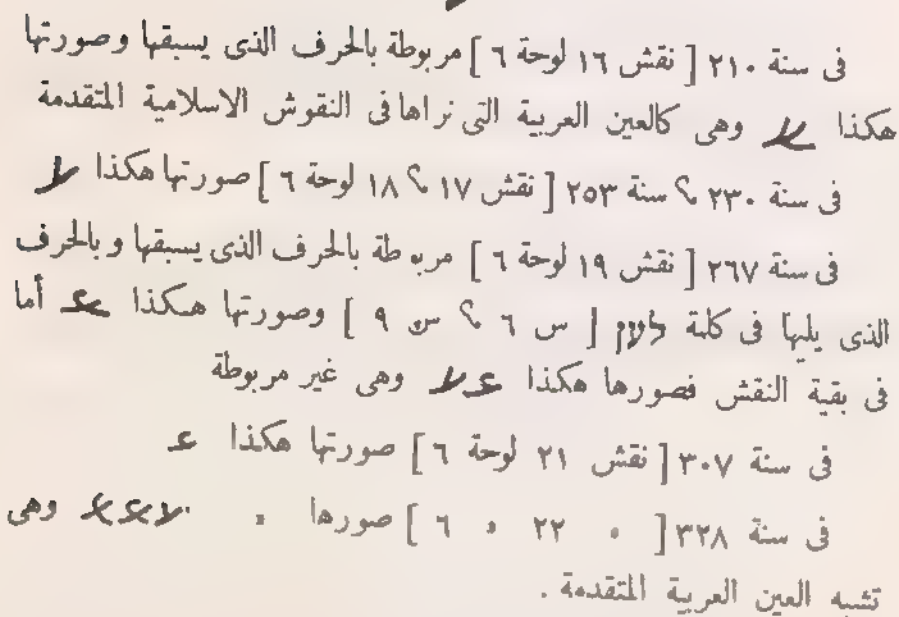 فى سنة ٢١٠ [ نقش ١٦ لوحة ٦ ] مربوطة بالحرف الذى يسبقها وصورتها
هكذا وهى كالعين العربية التى نراها فى النقوش الاسلامية المتقدمة
فى سنة ٢٣٠ ؟ سنة ٢٥٣ [ نقش ١٧ ؟ ١٨ لوحة ٦ ] صورتها هكذا
فى سنة ٢٦٧ [ نقش ١٩ لوحة ٦ ] مربوطة بالحرف الذى يسبقها وبالحرف
الذى يليها فى كلمة [ س ٦ ؟ س ٩ ] وصورتها هكذا أما
فى بقية النقش فصورها هكذا وهى غير مربوطة
فى سنة ٣٠٧ [ نقش ٢١ لوحة ٦ ] صورتها هكذا
فى سنة ٣٢٨ [ « ٢٢ « ٦ ] صورها « وهى
تشبه العين العربية المتقدمة .